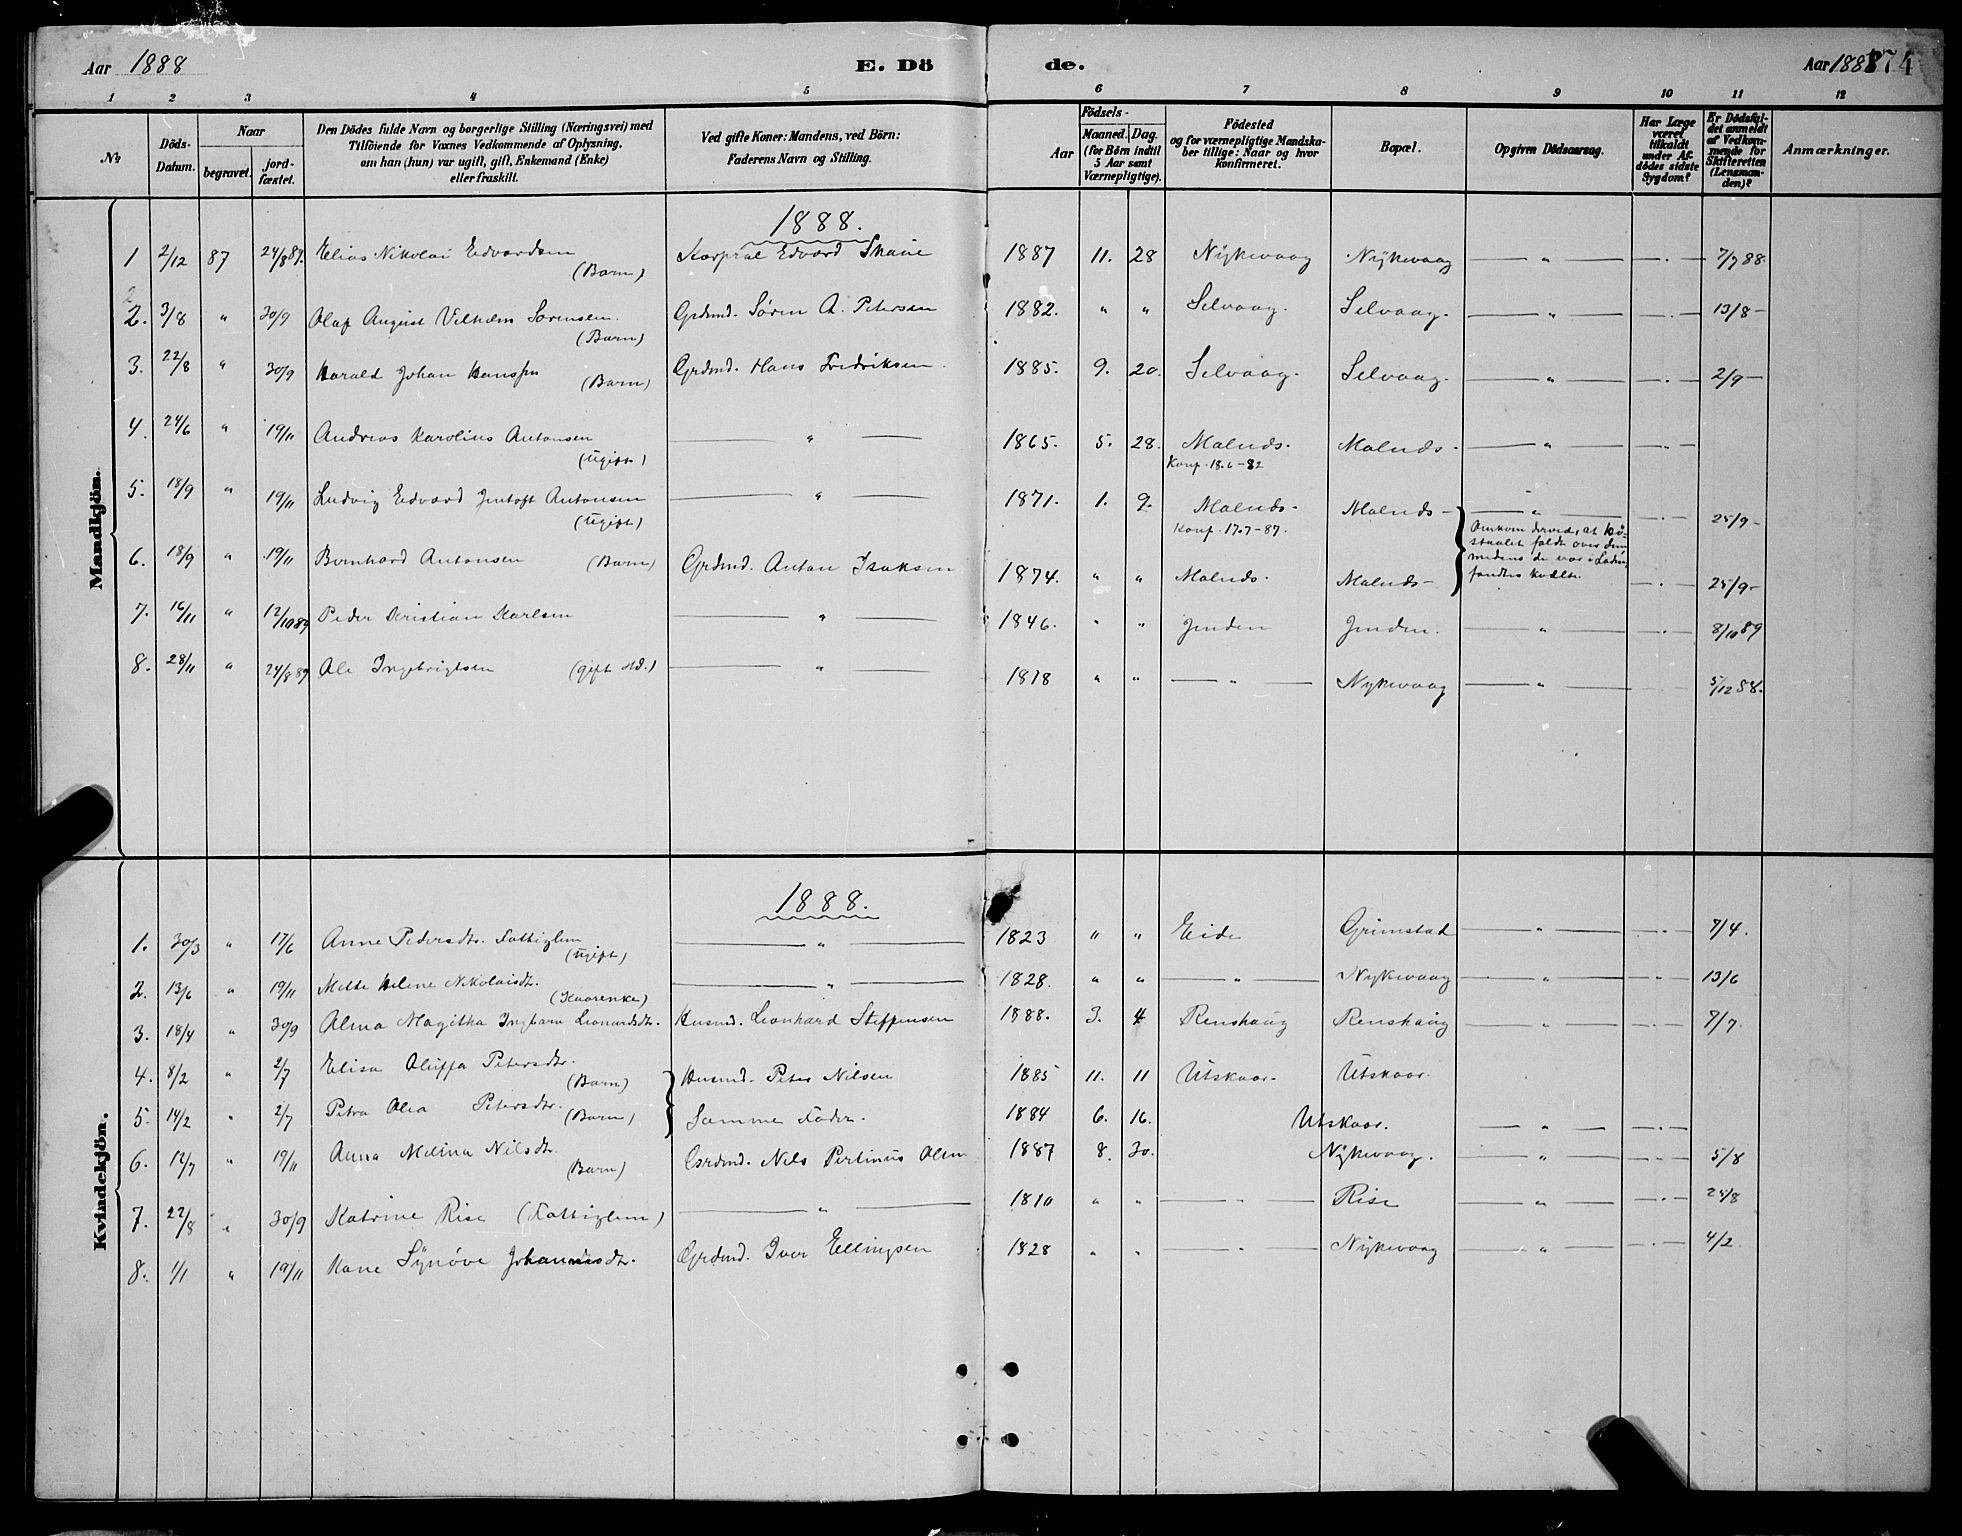 Aar 1888
E. Dö
de.
Aar 1888
174
1 2 3 4 5 6 7 8 9 10 11 12
No
Döds-Datum.
Naar
begravet.
jord-fæstet.
Den Dödes fulde Navn og borgerlige Stilling (Næringsvei) med
Tilföiende for Voxnes Vedkommende af Oplysning,
om han (hun) var ugift, gift, Enkemand (Enke)
eller fraskilt.
Ved gifte Koner: Mandens, ved Börn:
Faderens Navn og Stilling.
Födsels-
Aar
Maaned. Dag.
(for Börn indtil
5 Aar samt
Værnepligtige).
Födested
og for værnepligtige Mandska-
ber tillige: Naar og hvor
konfirmeret.
Bopæl.
Opgiven Dödsaarsag.
Har Læge
været
tilkaldt
under Af-
dödes sidste
Sygdom?
Er Dödsfal-
det anmeldt
af Vedkom-
mende for
Skifteretten
(Lensman-
den)?
Anmærkninger.
Mandkjön.
1888.
1 2/12 87 24/8 89. Elias Nikolai Edvardsen (Barn) Korpral Edvard Skanie 1887 11. 28 Nykvaag Nykvaag — " — — . — 7/7 88.
2. 3/8 " 30/9 Olaf August Vilhelm Sørensen. (Barn) Grdmd. Søren A. Petersen 1882. " " Selvaag. Selvaag. — " — — . — 13/8 —
3. 22/8 " 30/9 Harald Johan Hanssen (Barn) Grdmd. Hans Fredriksen 1885. 9. 20. Selvaag. Selvaag. — " — — . — 2/9 —
4. 24/6 " 19/11 Andreas Karolius Antonsen (Ugift) — " — 1865. 5. 28. Malnds. Konf. 18.6-82 Malnds. — " — — . —
5. 18/9 " 19/11 Ludvig Edvard Jentoft Antonsen (Ugift) — " — 1871. 1. 9. Malnds. Konf. 17.7-87. Malnds — " — — . — 25/9 —
Omkom derved, at
staalet faldt over dem
medens de var i
6. 18/9 " 19/11 Bernhard Antonsen (Barn) Grdmd. Anton Isaksen 1874. " " Malnds. Malnds — — . — 25/9 —
7. 16/11 " 12/10 89 Peder Kristian Karlsen — " — 1846. " " Jenden Jenden. — " — — . — 8/10 89
8. 28/11 " 24/8 89 Ole Ingebrigtsen (gift Md.) — " — 1818 " " — " — Nykvaag — " — — . — 5/12 88.
Kvindekjön.
1888.
1. 30/3 " 17/6 Anne Pedersdtr. Fattiglem (Ugift) — " — 1823 " " Eide Grimstad — " — — . — 7/4.
2. 13/6 " 19/11 Mette Helene Nikolaisdtr. (Kaarenke) — " — 1828. " " — " — Nykvaag — " — — " — 13/6
3. 18/4 " 30/9 Alma Magitha Ingbarn Leonardsdtr. Husmd. Leonhard Steffensen 1888. 3. 4 Renshaug Renshaug — " — — . — 7/7.
4. 8/2 " 2/7 Elisa Oluffa Petersdtr. (Barn) Husmd. Peter Nilsen 1885 11. 11 Utskaar. Utskaar.
5. 14/2 " 2/7 Petra Olea Petersdtr. (Barn) Samme Fader. 1884 6. 16. Utskaar. — " — — . —
6. 12/7 " 19/11 Anna Melina Nilsdtr. (Barn) Grdmd. Nils Pertinus Olsen 1887 8. 30. Nykvaag. — " — — . — 5/8
7. 22/8 " 30/9 Katrine Rise (Fattiglem) — " — 1810 " " — " — Rise — " — — . — 25/8
8. 1/1 " 19/11 Kone Synøve Johannesdtr. Grdmd. Iver Ellingsen 1828 " " — " — Nykvaag — " — — . — 4/2